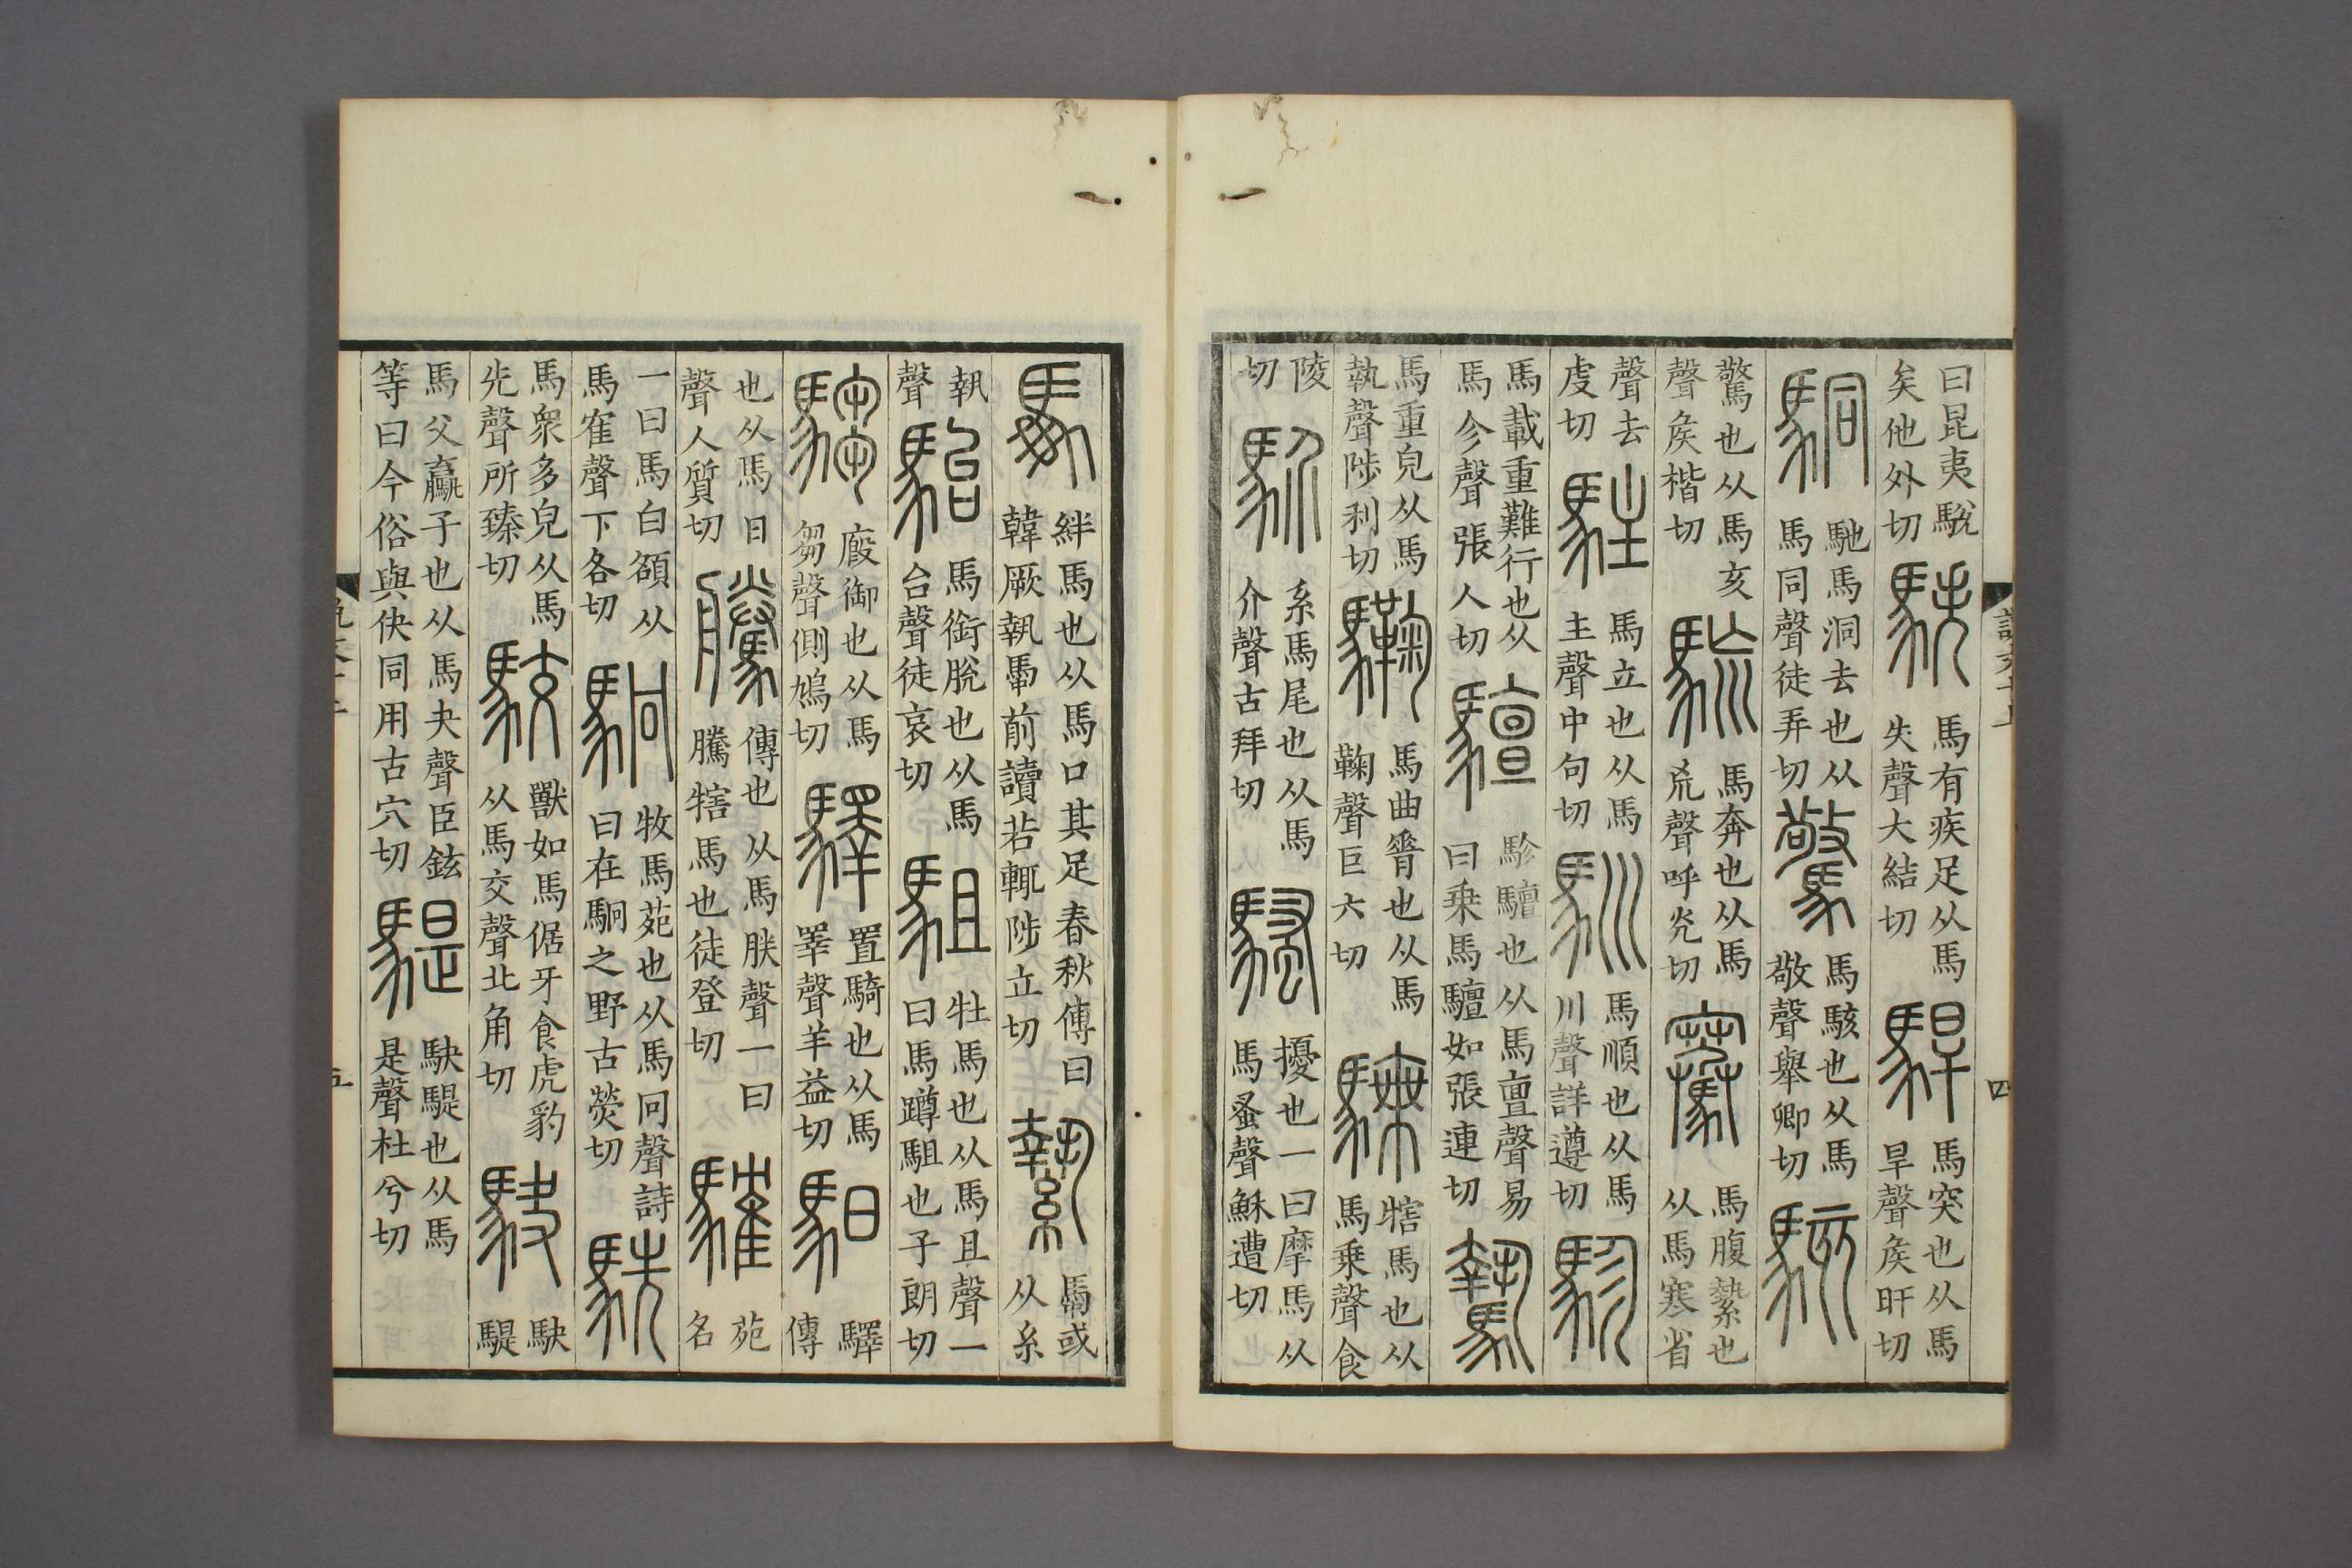 曰昆夷駾矣他外切 䭿 馬有疾足从馬失聲大結切 駻 馬突也从馬旱聲矦旰切
駧 馳馬洞去也从馬同聲徒弄切 驚 馬駭也从馬敬聲舉卿切 駭
驚也从馬亥聲矦楷切 馬奔也从馬㐬聲呼光切 騫 馬腹縶也从馬寒省
聲去虔切 駐 馬立也从馬主聲中句切 馴 馬順也从馬川聲詳遵切 駗
馬載重難行也从馬㐱聲張人切 驙 駗驙也从馬亶聲易曰乗馬驙如張連切 驇
馬重皃从馬執聲陟利切 驧 馬曲脊也从馬鞠聲巨六切 騬 犗馬也从馬乗聲食
陵切 系馬尾也从馬介聲古拜切 騷 擾也一曰摩馬从馬蚤聲穌遭切
馽 絆馬也从馬口其足春秋傳曰韓厥執馽前讀若輒陟立切 縶 馽或从糸
執聲 駘 馬銜脫也从馬台聲徒哀切 駔 牡馬也从馬且聲一曰馬蹲駔也子朗切
騶 廄御也从馬芻聲側鳩切 驛 置騎也从馬睪聲羊益切 馹 驛傳
也从馬日聲人質切 騰 傳也从馬朕聲一曰騰犗馬也徒登切 䮤 苑名
一曰馬白頟从馬隺聲下各切 駉 牧馬苑也从馬冋聲詩曰在駉之野古熒切 駪
馬衆多皃从馬先聲所臻切 駮 獸如馬倨牙食虎豹从馬交聲北角切 駃 駃騠
馬父驘子也从馬夬聲臣鉉等曰今俗與快同用古穴切 騠 駃騠也从馬是聲杜兮切